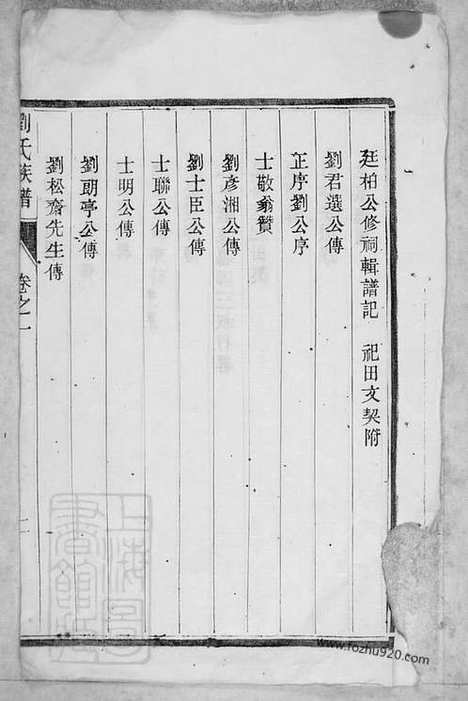 廷柏公修祠輯譜記　祀田文契附
劉君選公傳
正序劉公序
士敬翁贊
劉彥湘公傳
劉士臣公傳
士聯公傳
士明公傳
劉朗亭公傳
劉松齋先生傳
劉氏族譜　卷之一　二
上海圖書館藏
www.fozhu920.com